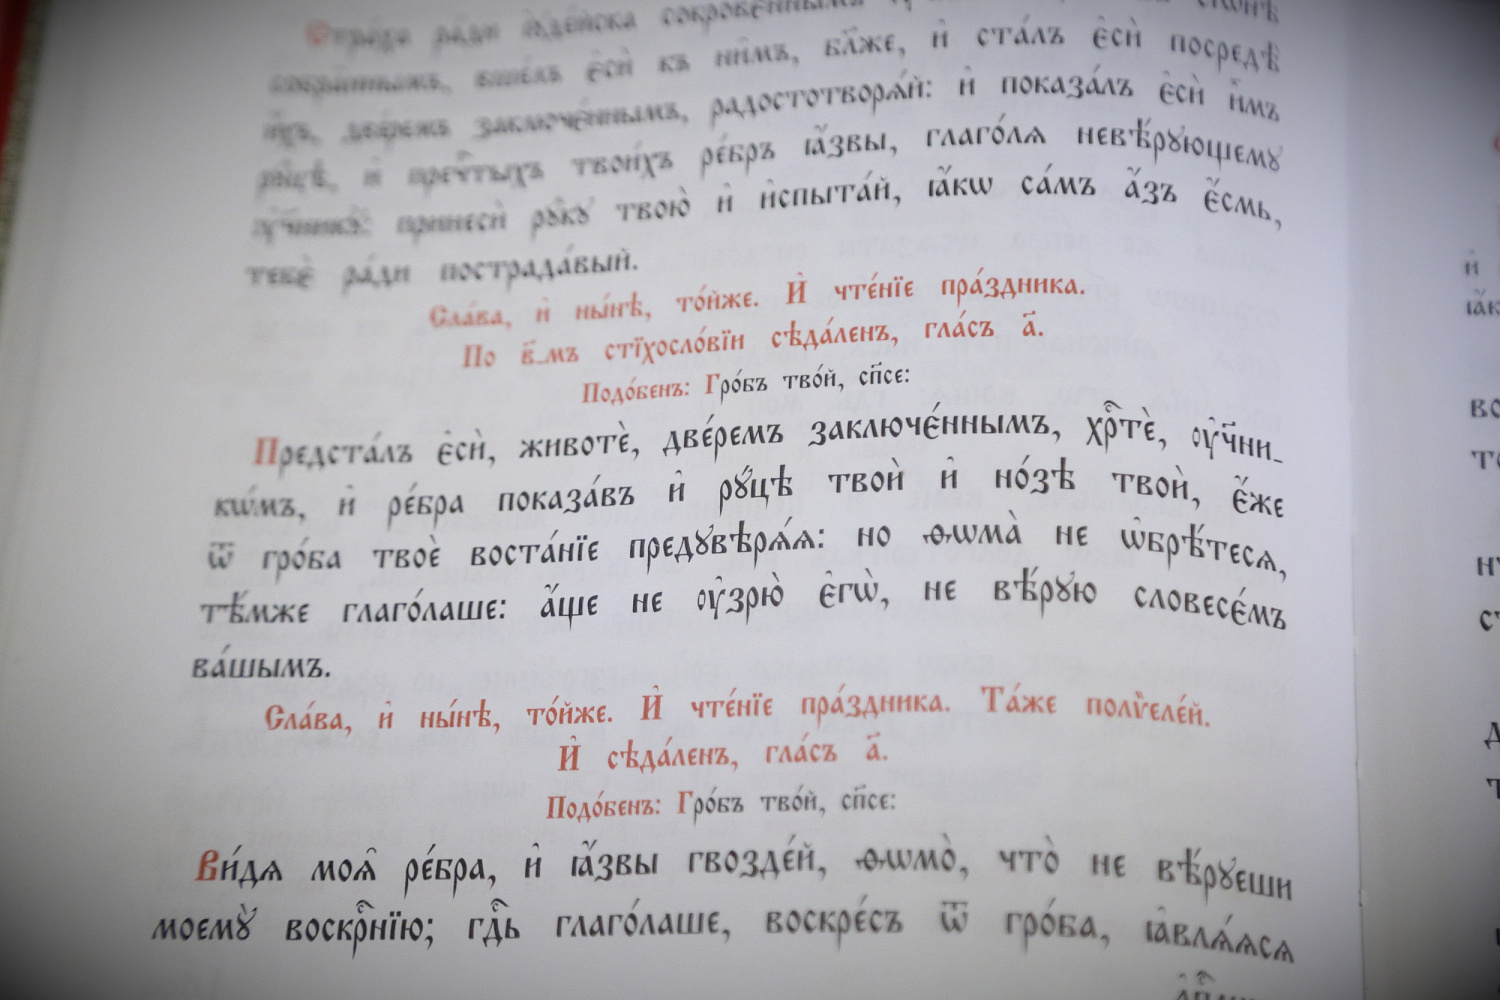 Стра́ха ра́ди і҆ꙋде́йска сокрове́ннымъ
собра̑ннымъ, воше́лъ є҆сѝ къ ни̑мъ, бл҃же, и҆ ста́лъ є҆сѝ посредѣ̀
и҆́хъ, две́ремъ заключє́ннымъ, радостотворѧ́й: и҆ показа́лъ є҆сѝ и҆̀мъ
рꙋ́цѣ, и҆ пречⷭ҇тыхъ твои́хъ ре́бръ ꙗ҆́звы, глаго́лѧ невѣ́рꙋющемꙋ
ᲂу҆ч҃никꙋ̀: принесѝ рꙋ́кꙋ твою̀ и҆ и҆спыта́й, ꙗ҆́кѡ са́мъ а҆́зъ є҆́смь,
тебє̀ ра́ди пострада́вый.
Сла́ва, и҆ ны́нѣ, то́йже. И҆ чте́нїе пра́здника.
По в҃_мъ стїхосло́вїи сѣда́ленъ, гла́съ а҃.
Подо́бенъ: Гро́бъ тво́й, сп҃се:
Предста́лъ є҆сѝ, животѐ, две́ремъ заключє́ннымъ, хрⷭ҇тѐ, ᲂу҆ч҃ни_
кѡ́мъ, и҆ ре́бра показа́въ и҆ рꙋ́цѣ твоѝ и҆ но́зѣ твоѝ, є҆́же
ѿ гро́ба твоѐ воста́нїе предꙋвѣрѧ́ѧ: но ѳѡма̀ не ѡ҆брѣ́тесѧ,
тѣ́мже глаго́лаше: а҆́ще не ᲂу҆зрю̀ є҆гѡ̀, не вѣ́рꙋю словесє́мъ
ва́шымъ.
Сла́ва, и҆ ны́нѣ, то́йже. И҆ чте́нїе пра́здника. Та́же полѷеле́й.
И҆ сѣда́ленъ, гла́съ а҃.
Подо́бенъ: Гро́бъ тво́й, сп҃се:
Ви́дѧ моѧ̑ ре́бра, и҆ ꙗ҆́звы гвозде́й, ѳѡмо̀, что̀ не вѣ́рꙋеши
моемꙋ̀ воскрⷭ҇нїю; гдⷭ҇ь глаго́лаше, воскре́съ ѿ гро́ба, ꙗ҆влѧ́ѧсѧ